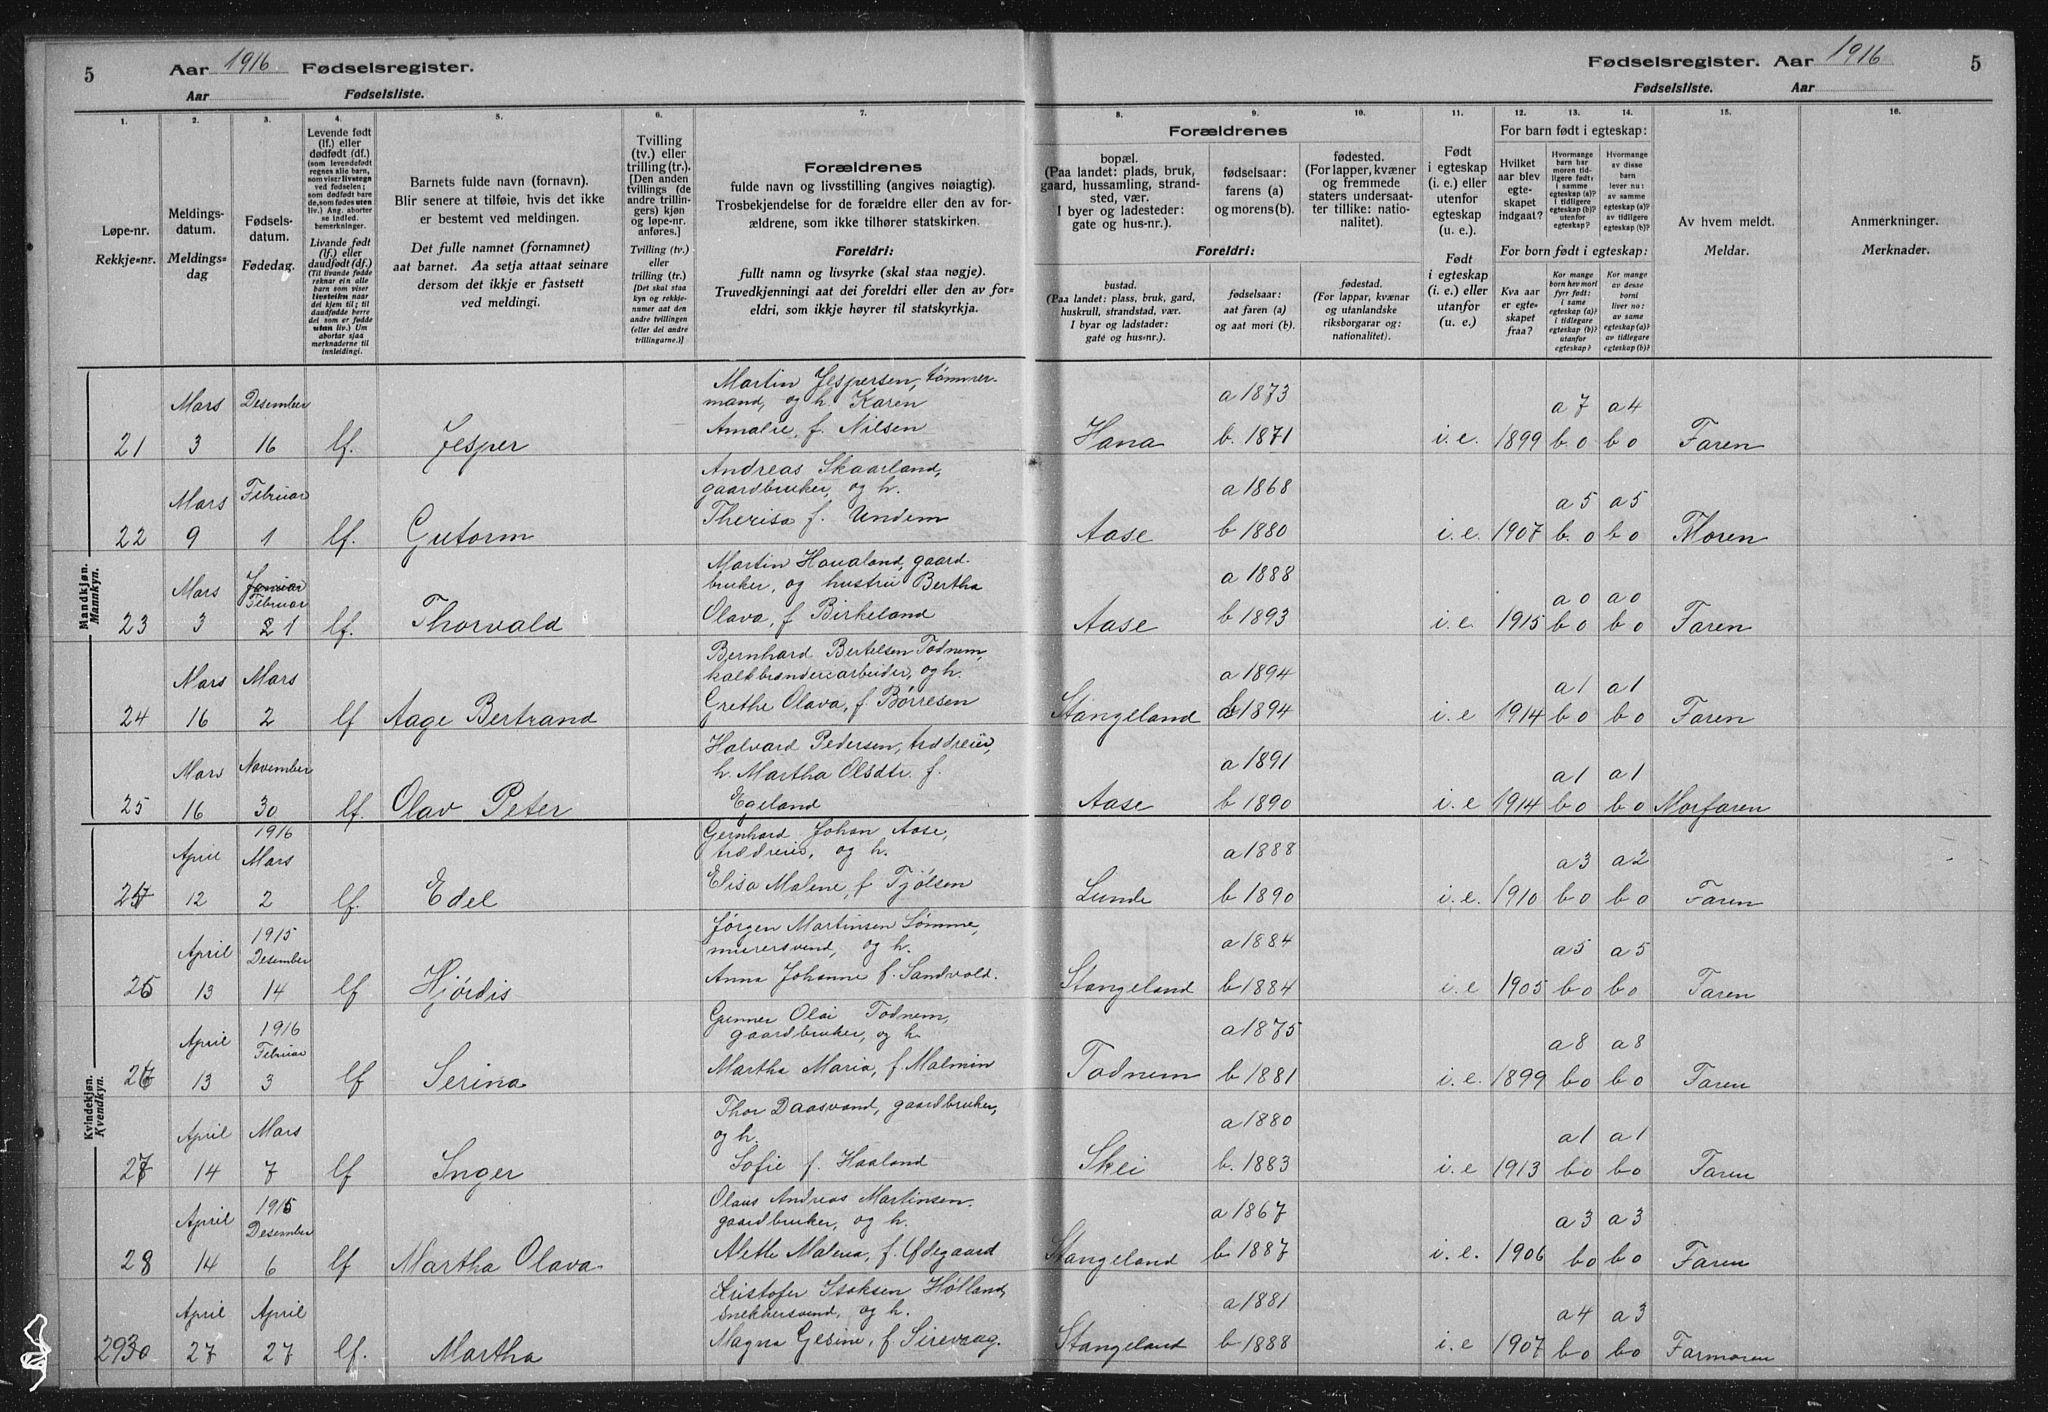 5
Aar 1916. Fødselsregister.
Aar Fødselsliste.
Fødselsregister. Aar 1916 5
Fødselsliste. Aar
1. 2. 3. 4. 5. 6. 7. 8. 9. 10. 11. 12. 13. 14. 15. 16.
Løpe-nr.
Rekkje=nr.
Meldings-
datum.
Meldings=
dag
Fødsels-
datum.
Fødedag.
Levende født
(lf.) eller
dødfødt (df.)
(som levendefødt
regnes alle barn,
som viser livstegn
ved fødselen;
som dødfødt bare
de, som fødes uten
liv.) Ang. aborter
se indled.
bemerkninger.
Livande født
(lf.) eller
daudfødt (df.)
(Til livande fødde
reknar ein alle
barn som viser
livsteikn naar
dei kjem til; til
daudfødde berre
dei som er fødde
utan liv.) Um
abortar sjaa
merknaderne til
innleidingi.
Barnets fulde navn (fornavn).
Blir senere at tilføie, hvis det ikke
er bestemt ved meldingen.
Det fulle namnet (fornamnet)
aat barnet. Aa setja attaat seinare
dersom det ikkje er fastsett
ved meldingi.
Tvilling
(tv.) eller
trilling (tr.)
[Den anden
tvillings (de
andre trillin-
gers) kjøn
og løpe-nr.
anføres.]
Tvilling (tv.)
eller
trilling (tr.)
[Det skal staa
kyn og rekkje-
numer aat den
andre tvillingen
(eller dei andre
trillingarne.)]
Forældrenes
fulde navn og livsstilling (angives nøiagtig).
Trosbekjendelse for de forældre eller den av for-
ældrene, som ikke tilhører statskirken.
Foreldri:
fullt namn og livsyrke (skal staa nøgje).
Truvedkjenningi aat dei foreldri eller den av for=
eldri, som ikkje høyrer til statskyrkja.
Forældrenes
bopæl.
(Paa landet: plads, bruk,
gaard, hussamling, strand-
sted, vær.
I byer og ladesteder:
gate og hus-nr.).
fødselsaar:
farens (a)
og morens (b).
fødested.
(For lapper, kvæner
og fremmede
staters undersaat-
ter tillike: natio-
nalitet).
Foreldri:
bustad.
(Paa landet: plass, bruk, gard,
huskrull, strandstad, vær.
I byar og ladstader:
gate og hus=nr.).
fødselsaar:
aat faren (a)
og aat mori (b).
fødestad.
(For lappar, kvænar
og utanlandske
riksborgarar og:
nationalitet).
Født
i egteskap
(i. e.) eller
utenfor
egteskap
(u. e.).
Født
i egteskap
(i. e.) eller
utanfor
egteskap
(u. e.).
For barn født i egteskap:
Hvilket
aar blev
egte-
skapet
indgaat?
Hvormange
barn har
moren tid-
ligere født:
i samme
egteskap (a)?
i tidligere
egteskap (b)?
utenfor
egteskap?
Hvormange
av disse
barn
lever nu:
av samme
egteskap (a)?
av tidligere
egteskap (b)?
For born født i egteskap:
Kva aar
er egte=
skapet
fraa?
Kor mange
born hev mori
fyrr født:
i same
egteskap (a)?
i tidlegare
egteskap (b)?
utanfor
egteskap?
Kor mange
av desse
borni
liver no:
av same
egteskap (a)?
av tidlegare
egteskap (b)?
Av hvem meldt.
Meldar.
Anmerkninger.
Merknader.
Mandkjøn.
Mannkyn.
21 Mars 3 Desember 16 lf. Jesper
Martin Jespersen, tømmer-
mand, og h. Karen
Amalie, f. Nilsen
Hana a 1873 b. 1871 i. e. 1899 a 7 b o a 4 b o Faren
22 Mars 9 Februar 1 lf. Gutorm
Andreas Skaarland,
gaardbruker, og h.
Therisa f. Undem
Aase a 1868 b 1880 i. e. 1907 a 5 b. o a 5 b o Moren
23 Mars 3 Januar Februar 21 lf. Thorvald
Martin Haualand, gaard-
bruker, og hustru Bertha
Olava, f. Birkeland
Aase a 1888 b 1893 i. e. 1915 a o b o a o b o Faren
24 Mars 16 Mars 2 lf Aage Bertrand
Bernhard Bertelsen Todnem,
kalkbrænderiarbeider, og h.
Grethe Olava, f. Børresen
Stangeland a 1894 b 1894 i. e 1914 a 1 b o a 1 b o Faren
25 Mars 16 November 30 lf. Olav Peter
Halvard Pedersen, trædreier,
h. Martha Olsdtr. f.
Egeland
Aase a 1891 b 1890 i. e 1914 a 1 b o a 1 b o Morfaren
Kvindekjøn.
Kvendkyn.
April 12 1916 Mars 2 lf. Edel
Gernhard Johan Aase,
trædreier, og h.
Elisa Malene, f Tjølsen
Lunde a 1888 b 1890 i. e. 1910 a 3 b o a 2 b o Faren
April 13 1915 Desember 14 lf Hjørdis
Jørgen Martinsen Sømme,
murersvend, og h.
Anna Johanne f. Sandvold.
Stangeland a 1884 b 1884 i. e 1905 a 5 b o a 5 b o Faren
April 13 1916 Februar 3 lf Serina
Gunner Olai Todnem,
gaardbruker, og h.
Martha Maria, f. Malmin
Todnem a 1875 b 1881 i. e 1899 a 8 b o a 8 b o Faren
27 April 14 Mars 7 lf Inger
Thor Daasvand, gaardbruker,
og h.
Sofie f. Haaland
Skei a 1880 b. 1883 i. e 1913 a 1 b o a 1 b o Faren
28 April 14 1915 Desember 6 lf Martha Olava
Olaus Andreas Martinsen.
gaardbruker, og h.
Alette Malena, f. Ødegaard
Stangeland a 1867 b. 1887 i. e. 1906 a 3 b o a 3 b o Faren
2930 April 27 April 27 lf. Martha
Kristofer Isaksen Hølland,
snekkersvend, og h.
Magna Gesine, f. Sirevaag.
Stangeland a 1881 b 1888 i. e 1907 a 4 b o a 3 b o Farmoren